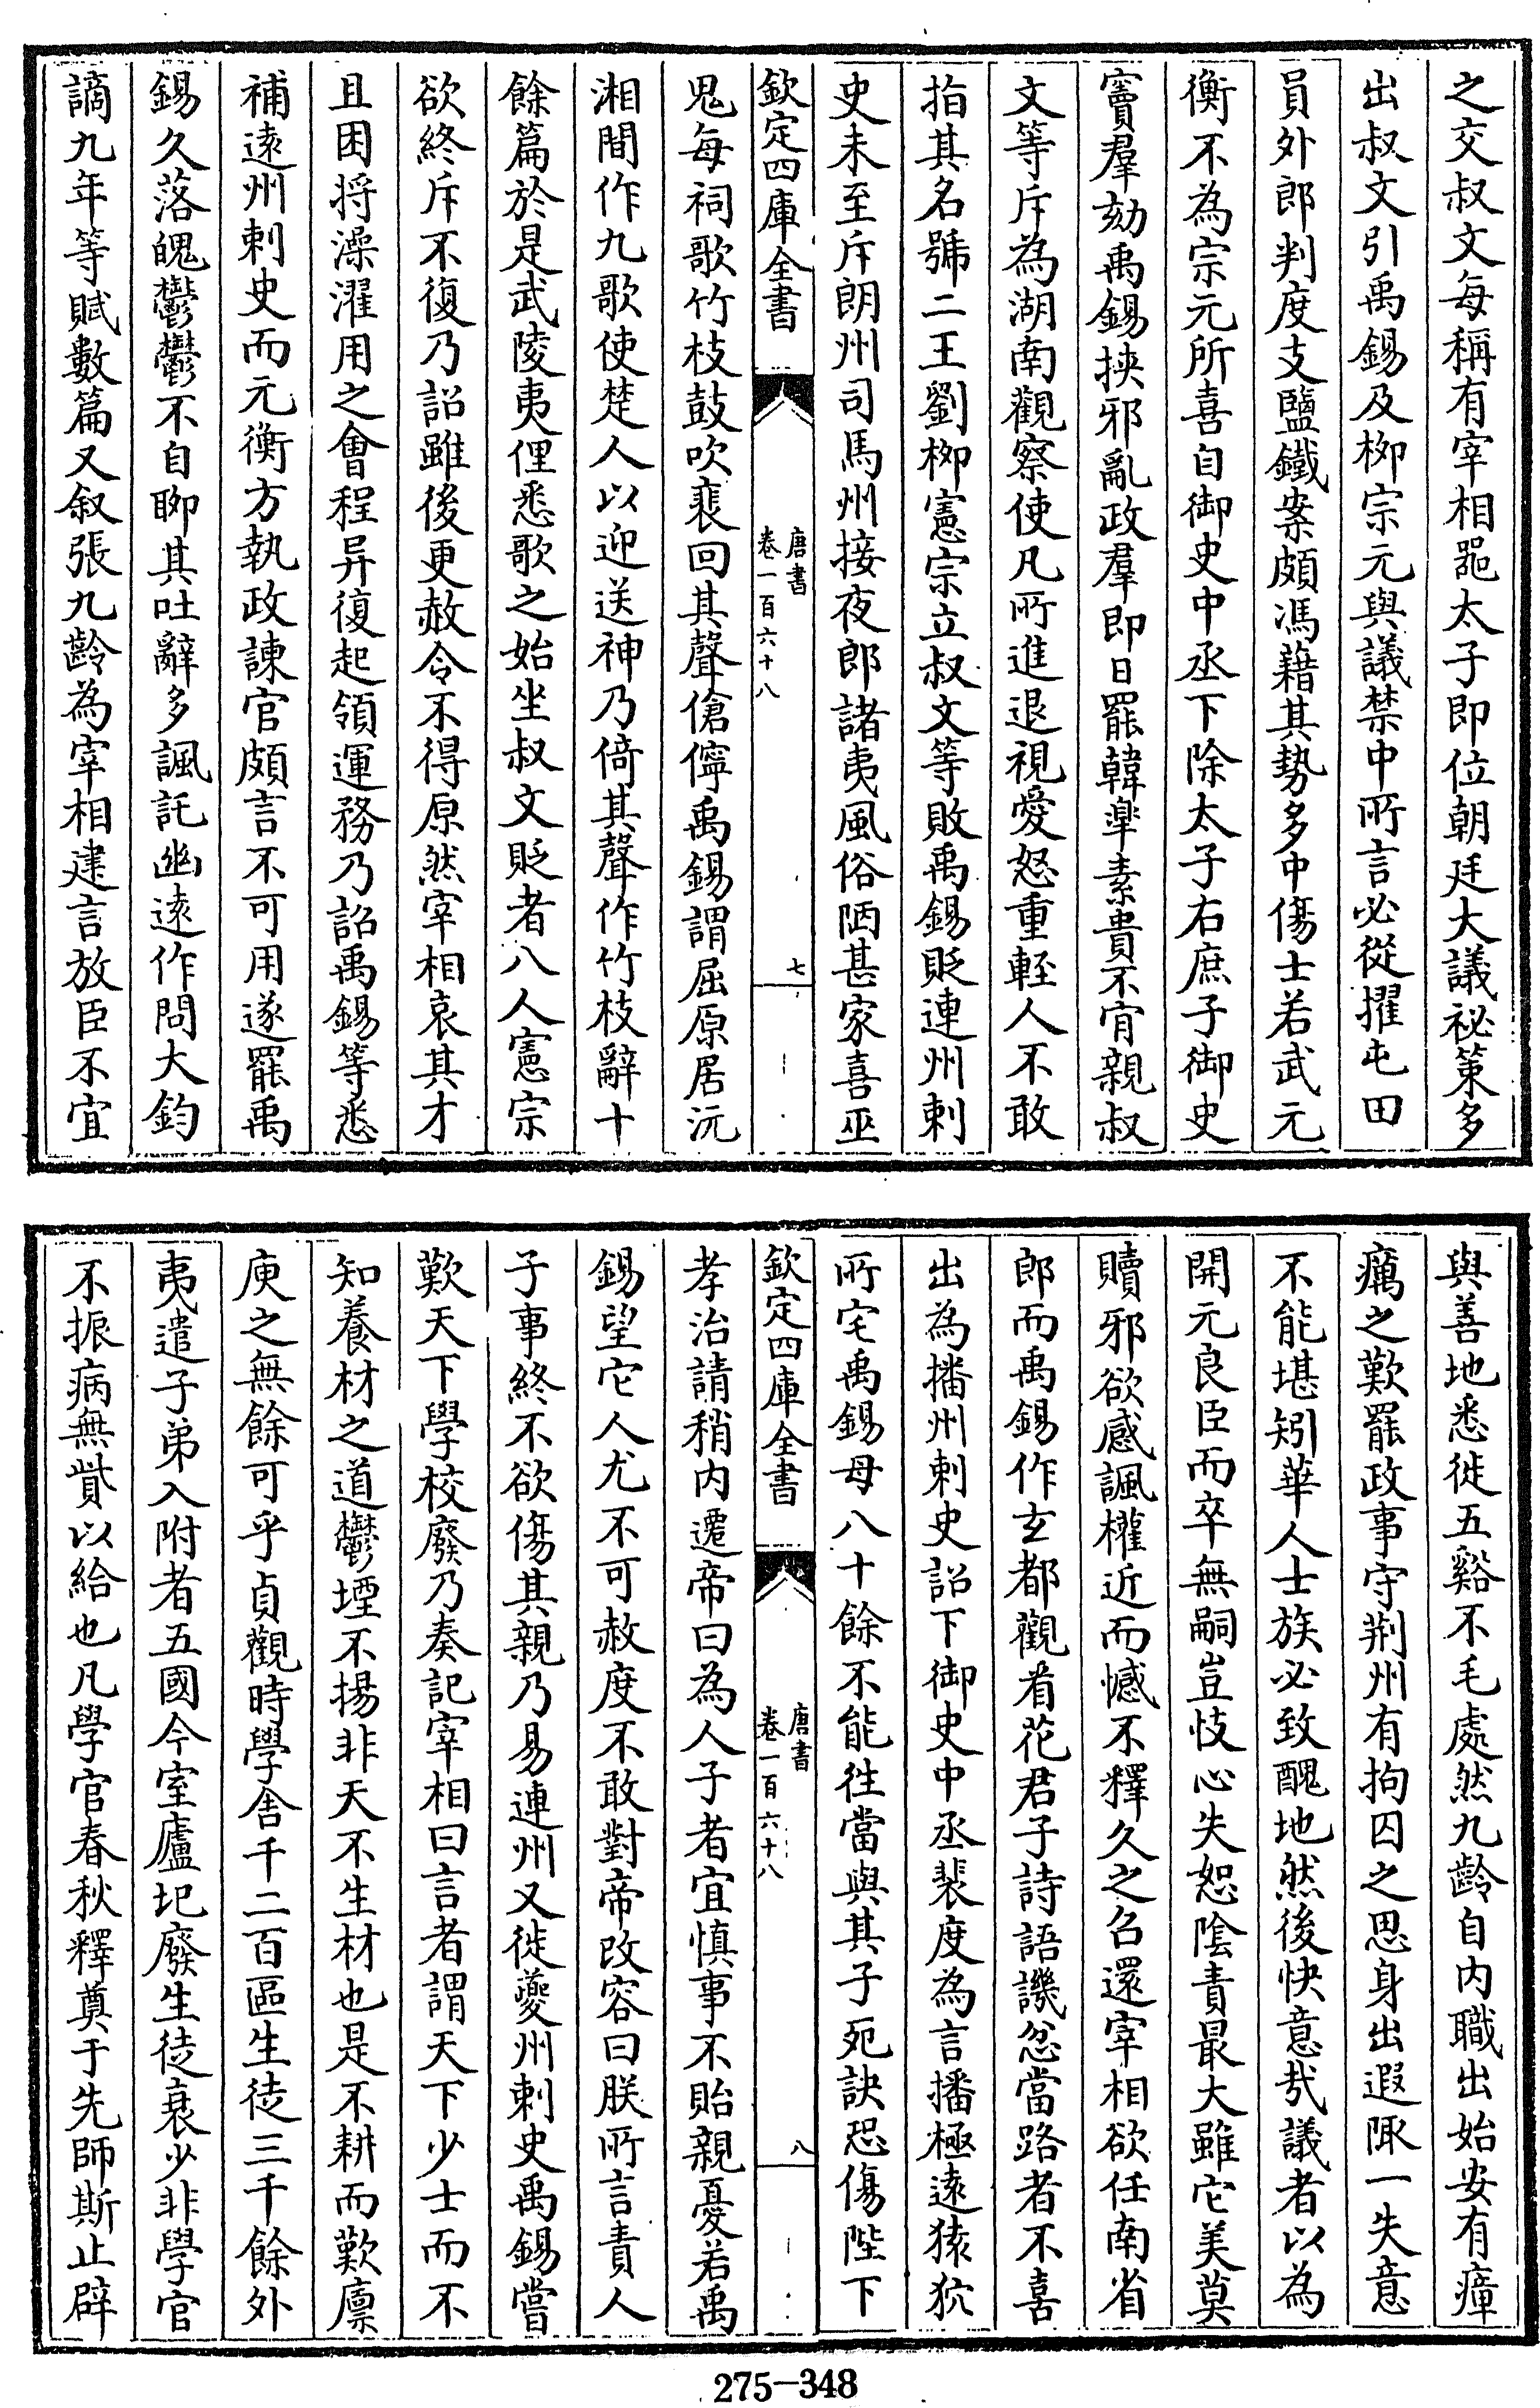 之交叔文每稱有宰相噐太子即位朝廷大議祕策多
出叔文引禹錫及柳宗元與議禁中所言必從擢屯田
員外郎判度支鹽鐵案頗馮藉其勢多中傷士若武元
衡不為宗元所喜自御史中丞下除太子右庶子御史
竇羣劾禹錫挾邪亂政羣即日罷韓臯素貴不肯親叔
文等斥為湖南觀察使凡所進退視愛怒重輕人不敢
指其名號二王劉柳憲宗立叔文等敗禹錫貶連州刺
史未至斥朗州司馬州接夜郎諸夷風俗陋甚家喜巫
欽定四庫全書
唐書
卷一百六十八
七
鬼每祠歌竹枝鼓吹裵回其聲傖儜禹錫謂屈原居沅
湘間作九歌使楚人以迎送神乃倚其聲作竹枝辭十
餘篇於是武陵夷俚悉歌之始坐叔文貶者八人憲宗
欲終斥不復乃詔雖後更赦令不得原然宰相哀其才
且困將澡濯用之會程异復起領運務乃詔禹錫等悉
補遠州刺史而元衡方執政諫官頗言不可用遂罷禹
錫久落魄鬱鬱不自聊其吐辭多諷託幽遠作問大鈞
謫九年等賦數篇又叙張九齡為宰相建言放臣不宜
與善地悉徙五谿不毛處然九齡自內職出始安有瘴
癘之歎罷政事守荆州有拘囚之思身出遐陬一失意
不能堪矧華人士族必致醜地然後快意哉議者以為
開元良臣而卒無嗣豈忮心失恕陰責最大雖它美莫
贖邪欲感諷權近而憾不釋久之召還宰相欲任南省
郎而禹錫作玄都觀看花君子詩語譏忿當路者不喜
出為播州刺史詔下御史中丞裴度為言播極遠猿狖
所宅禹錫母八十餘不能往當與其子死訣恐傷陛下
欽定四庫全書
唐書
卷一百六十八
八
孝治請稍內遷帝曰為人子者宜慎事不貽親憂若禹
錫望它人尤不可赦度不敢對帝改容曰朕所言責人
子事終不欲傷其親乃易連州又徙夔州刺史禹錫嘗
歎天下學校廢乃奏記宰相曰言者謂天下少士而不
知養材之道鬱堙不揚非天不生材也是不耕而歎廩
庾之無餘可乎貞觀時學舎千二百區生徒三千餘外
夷遣子弟入附者五國今室廬圮廢生徒衰少非學官
不振病無貲以給也凡學官春秋釋奠于先師斯止辟
275-348